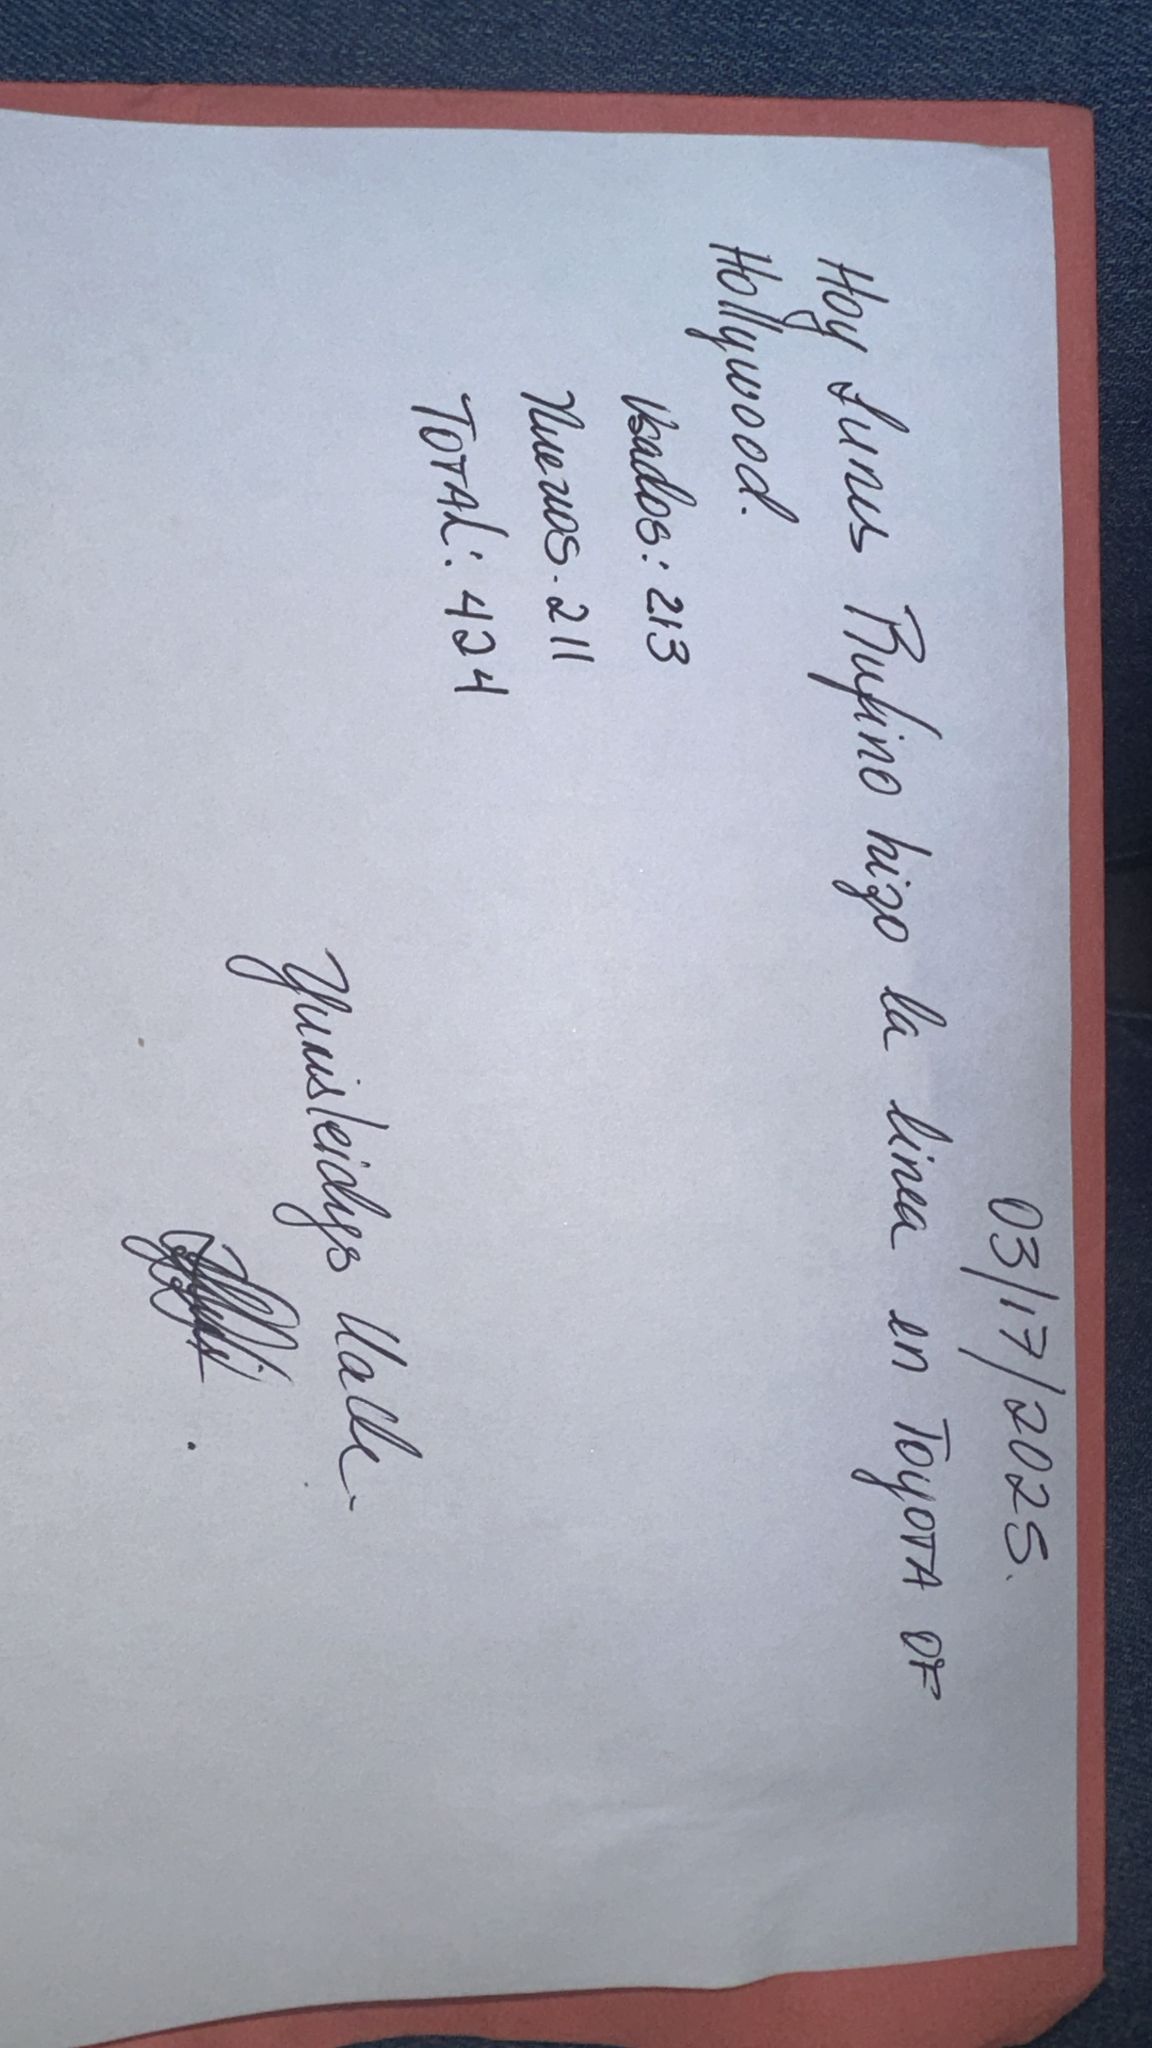 03/17/2025.
Hoy Lunes Rufino higo la linea en Toyota OF
Hollywood.
Usados: 213
Nuevos. 211
Total: 424
Yunisleidys Valle.